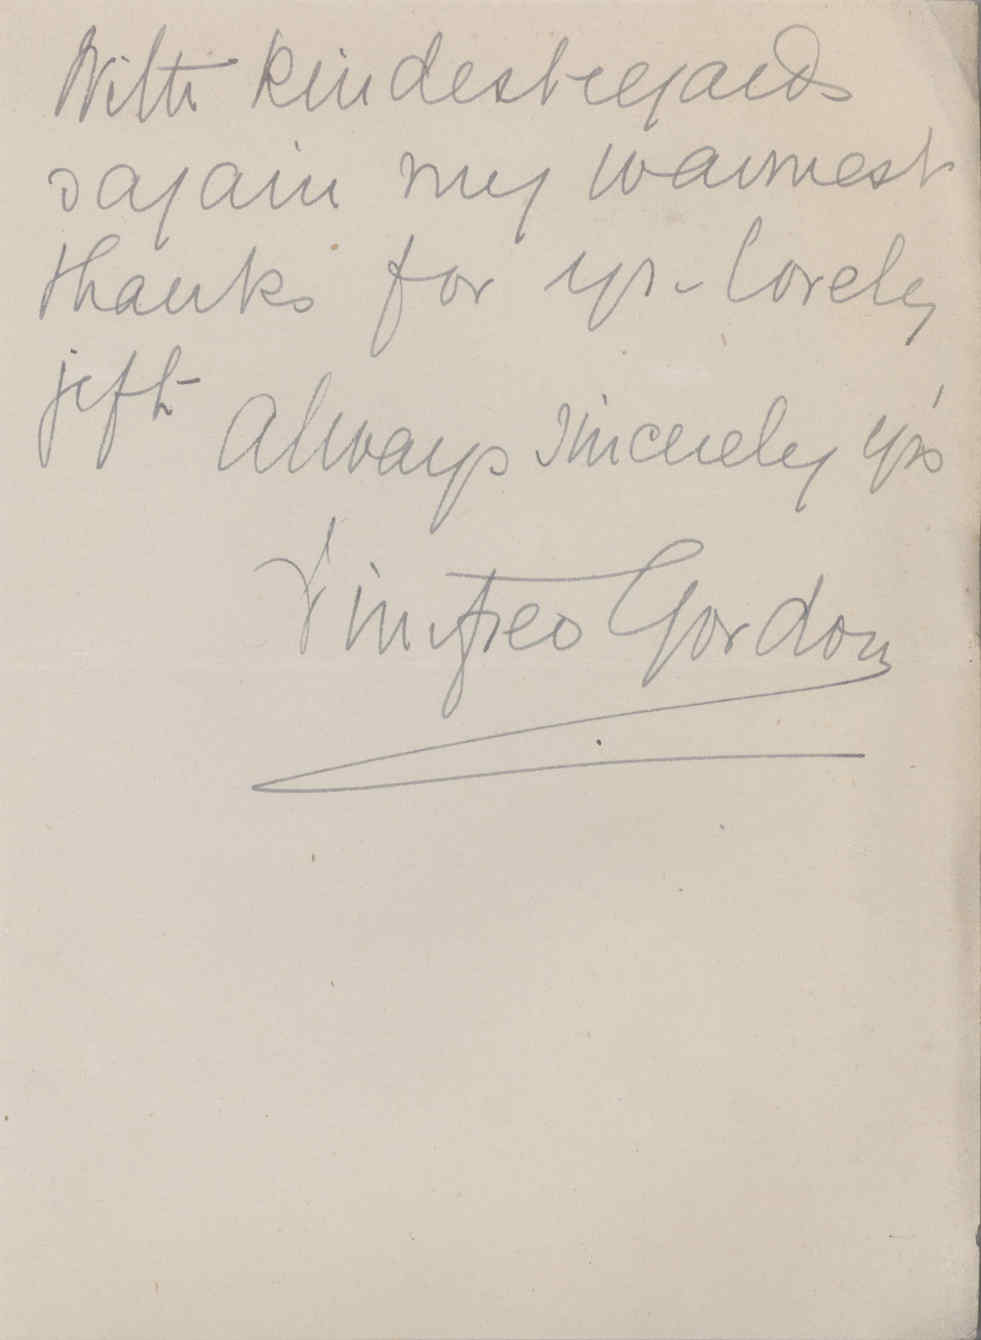 With kindest regards
& again my warmest
thanks for yr. lovely
gift
Always sincerely yrs
Winifred Gordon